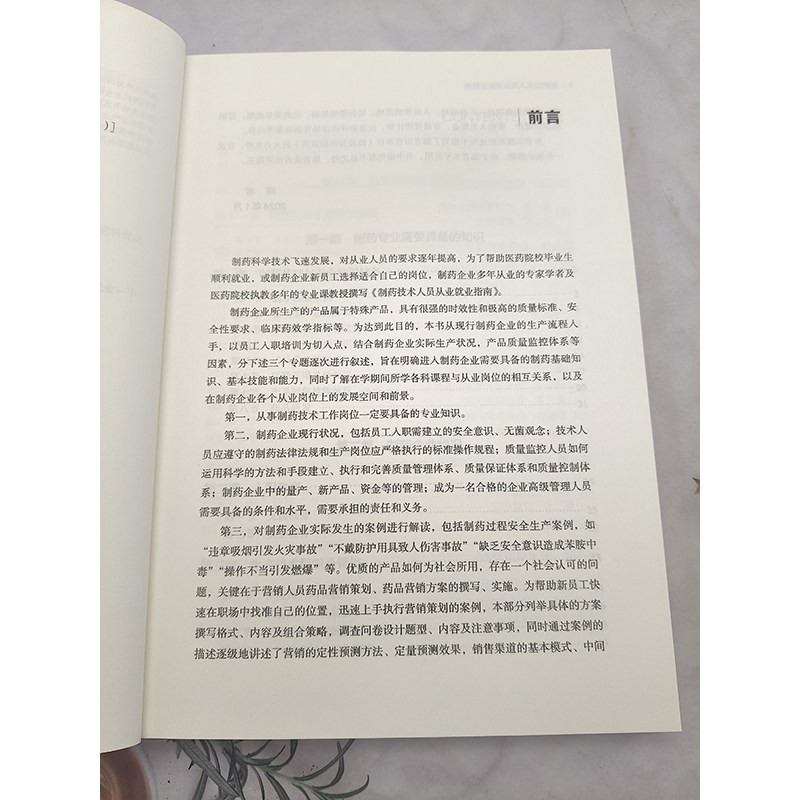 前言
制药科学技术飞速发展，对从业人员的要求逐年提高，为了帮助医药院校毕业生
顺利就业，或制药企业新员工选择适合自己的岗位，制药企业多年从业的专家学者及
医药院校执教多年的专业课教授撰写《制药技术人员从业就业指南》。
制药企业所生产的产品属于特殊产品，具有很强的时效性和极高的质量标准、安
全性要求、临床药效学指标等。为达到此目的，本书从现行制药企业的生产流程入
手，以员工入职培训为切入点，结合制药企业实际生产状况，产品质量监控体系等
因素，分下述三个专题逐次进行叙述，旨在明确进入制药企业需要具备的制药基础知
识、基本技能和能力，同时了解在学期间所学各科课程与从业岗位的相互关系，以及
在制药企业各个从业岗位上的发展空间和前景。
第一，从事制药技术工作岗位一定要具备的专业知识。
第二，制药企业现行状况，包括员工入职需建立的安全意识、无菌观念；技术人
员应遵守的制药法律法规和生产岗位应严格执行的标准操作规程；质量监控人员如何
运用科学的方法和手段建立、执行和完善质量管理体系、质量保证体系和质量控制体
系；制药企业中的量产、新产品、资金等的管理；成为一名合格的企业高级管理人员
需要具备的条件和水平，需要承担的责任和义务。
第三，对制药企业实际发生的案例进行解读，包括制药过程安全生产案例，如
“违章吸烟引发火灾事故”“不戴防护用具致人伤害事故”“缺乏安全意识造成苯胺中
毒”“操作不当引发燃爆”等。优质的产品如何为社会所用，存在一个社会认可的问
题，关键在于营销人员药品营销策划、药品营销方案的撰写、实施。为帮助新员工快
速在职场中找准自己的位置，迅速上手执行营销策划的案例，本部分列举具体的方案
撰写格式、内容及组合策略，调查问卷设计题型、内容及注意事项，同时通过案例的
描述逐级地讲述了营销的定性预测方法、定量预测效果，销售渠道的基本模式、中间